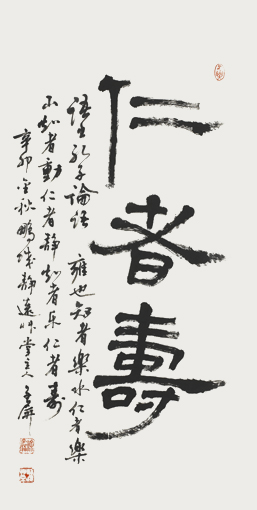 仁者壽
語出孔子論語雍也知者樂水仁者樂
山知者動仁者靜知者乐仁者壽
辛卯金秋鵬城靜遠堂主人